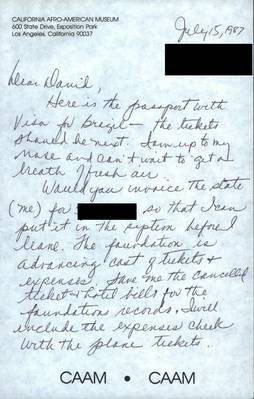 CALIFORNIA AFRO-AMERICAN MUSEUM
600 State Drive, Exposition Park
Los Angeles, California 90037
July 15, 1987
Dear David,
Here is the passport with
Visa for Brazil — the tickets
should be next. I am up to my
nose and can't wait to get a
breath of fresh air.
Would you invoice the state
(me) for so that I can
put it in the system before I
leave. The foundation is
advancing cost of tickets &
expenses. Save me the cancelled
ticket & hotel bills for the
foundation records. I will
include the expenses check
with the plane tickets.
CAAM • CAAM